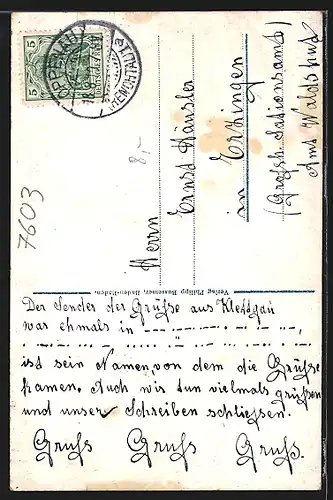 5 5
OPPENAU
(RENCHTHAL)
8,-
7603
Herrn
Ernst Häusler
in Erzingen
(Großh. Stationsamt)
Amt Waldshut
Verlag Philipp Bussemer, Baden-Baden.
Der Sender der Grüße aus Klettgau
war ehmals in
ist sein Namen, von dem die Grüße
kamen, Auch wir tun vielmals grüßen
und unser Schreiben schließen.
Gruß Gruß Gruß.